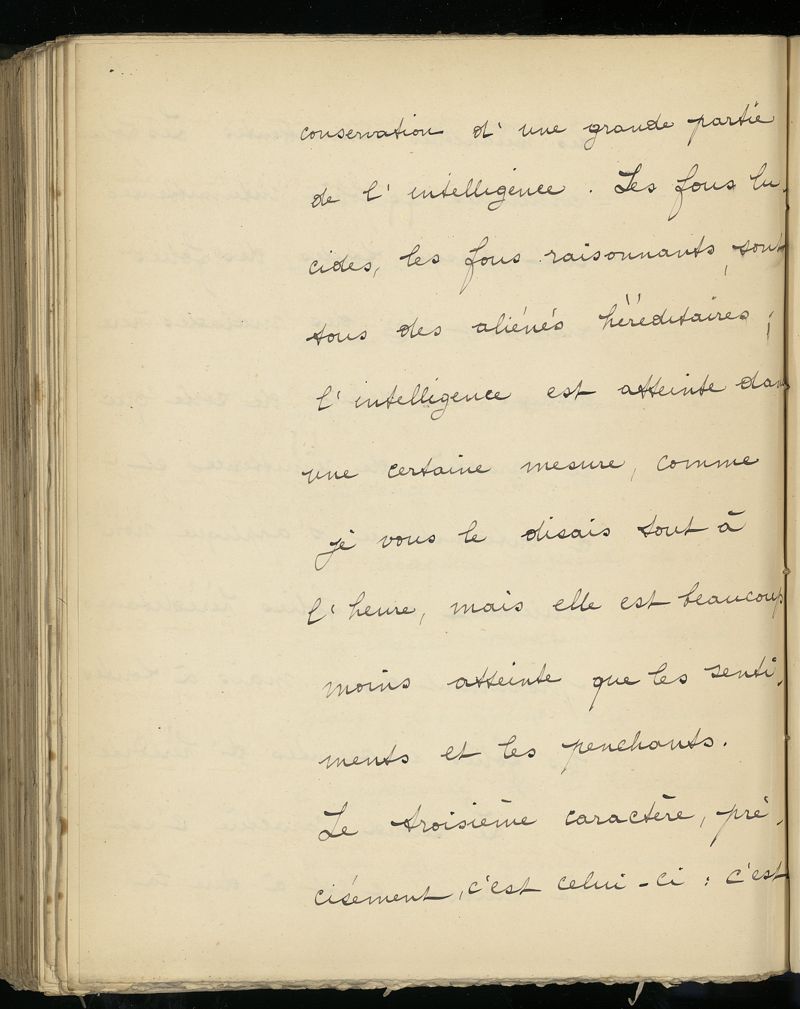 conservation d'une grande partie
de l'intelligence. Les fous lu-
cides, les fous raisonnants, sont
tous des aliénés héréditaires ;
l'intelligence est atteinte dan
une certaine mesure, comme
je vous le disais tout à
l'heure, mais elle est beaucoup
moins atteinte que les senti-
ments et les penchants.
Le troisième caractère, pré-
cisément, c'est celui-ci : c'est